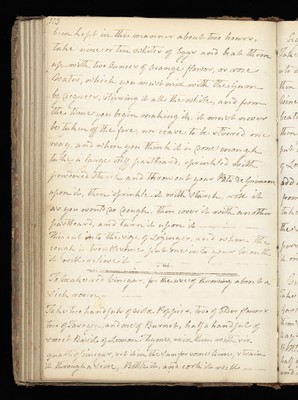 113
been kept in this manner about two hours,
take nine or ten whites of Eggs and beat them
up with two ounces of orange flower, or rose
Water, which you must mix with the Gum
by degrees, stirring it all the while, and from
the time you begin making it, it must never
be taken off the fire, nor cease to be stirred one
way, and when you think it is done enough
take a large stiff pastboard, sprinkled with
powdered Starch and throw out your Pate de Guimauve
upon it, then sprinkle it with starch, roll it
as you would do dough, then cover it with another
pastboard, and turn it upon it
Then cut into the size of Lozenges, and when the
cough is troublesome put one into your mouth
it will relieve it
To make Vinegar, for the use of burning about a
sick room
Take two handfuls of wild Poppies, two of Elder flowers
two of Savory, and one of Burnet, half a handful of
sweet Basil & Lemon Thyme, mix them with six
quarts of vinegar, set it in the sun for some time, strain
it through a sieve, Bottle it, and cork it well